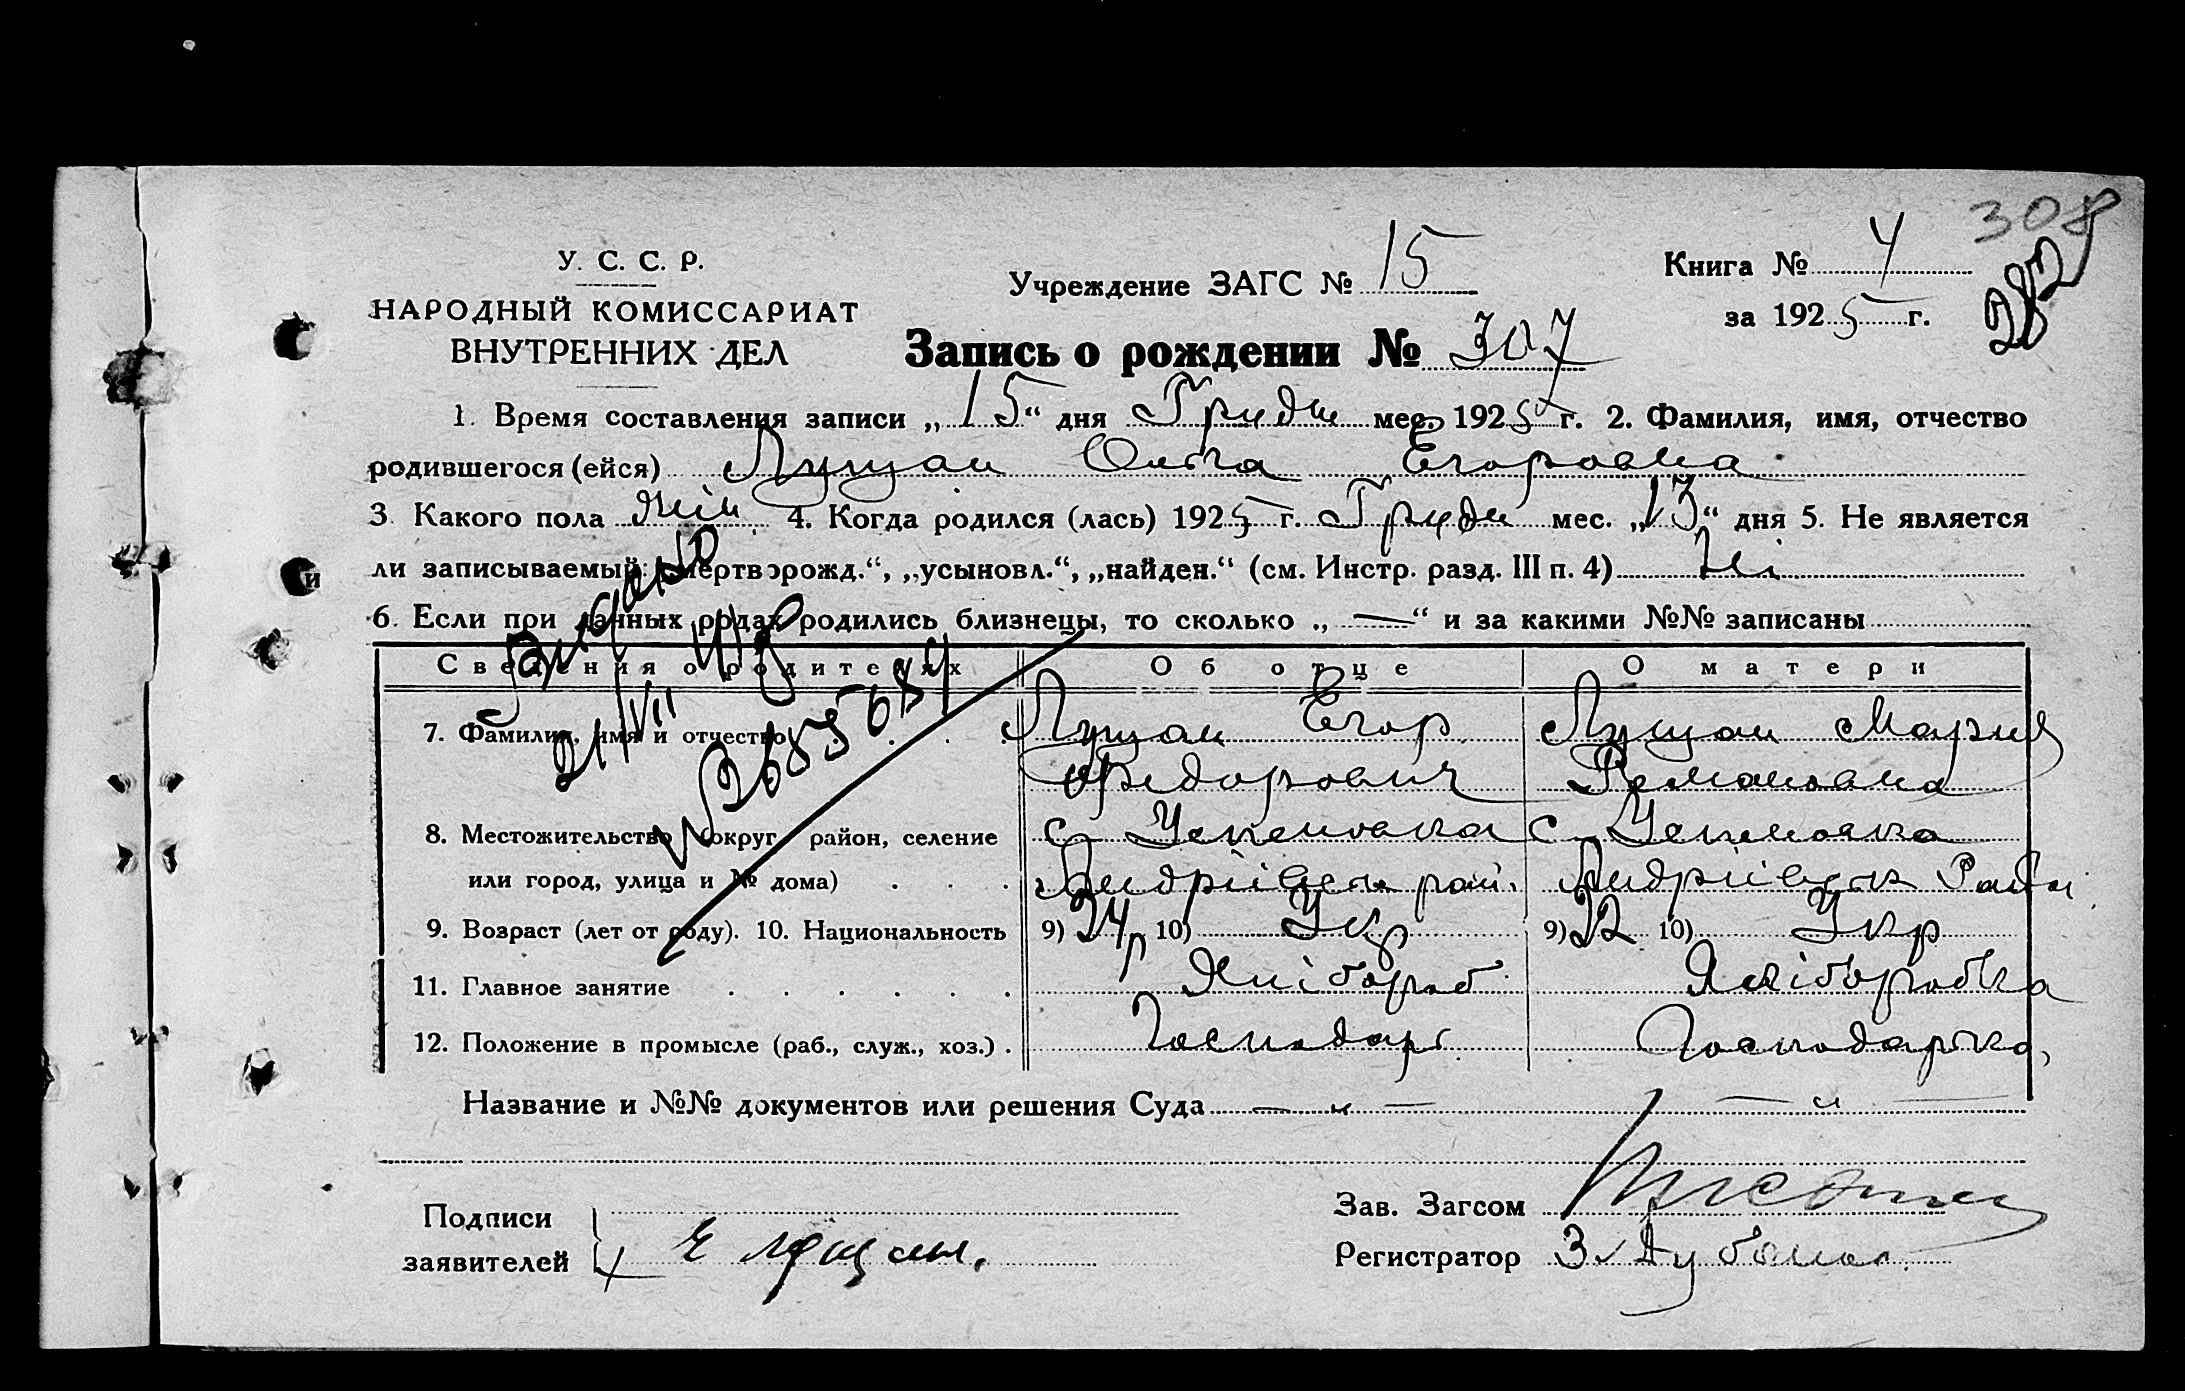 308
282
У. С. С. Р.
НАРОДНЫЙ КОМИССАРИАТ
ВНУТРЕННИХ ДЕЛ
Учреждение ЗАГС № 15
Книга № 4
за 1925 г.
Запись о рождении № 307
1. Время составления записи „15“ дня Грудн мес. 1925 г. 2. Фамилия, имя, отчество
родившегося (ейся) Лущан Ольга Егоровна
3. Какого пола жін 4. Когда родился (лась) 1925 г. Грудн мес. „13“ дня 5. Не является
ли записываемый: „мертворожд.“, „усыновл.“, „найден.“ (см. Инстр. разд. III п. 4) Ні
6. Если при данных родах родились близнецы, то сколько „ — “ и за какими №№ записаны
Сведения о родителях Об отце О матери
7. Фамилия, имя и отчество Лущан Егор Лущан Мария
Федорович Романовна
8. Местожительство (округ, район, селение с Успеновка с Успеновка
или город, улица и № дома) Андріівськ рай. Андріівськ Район
9. Возраст (лет от роду). 10. Национальность 9) 24 р 10) Укр 9) 22 10) Укр
11. Главное занятие Хлібороб Хліборобка
12. Положение в промысле (раб., служ., хоз.) Господарь Господарька
Видано
21/VII
№
Название и №№ документов или решения Суда — „ — — „ —
Подписи
заявителей Е Лущан.
Зав. Загсом
Регистратор